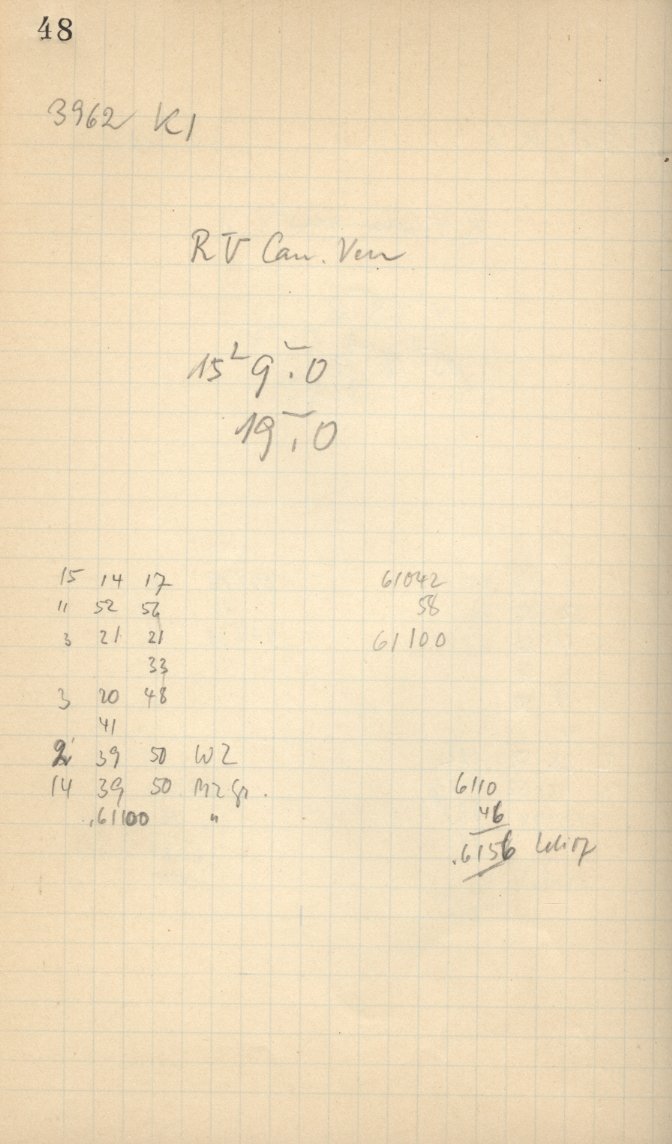 48
3962 K1
RV Can. Ven
15 9.0
19.0
15 14 17
" 52 56
3 21 21
33
3 20 48
41
2 39 50 WZ
14 39 50 MZ gr.
.61100 "
61042
58
61100
6110
46
.6156